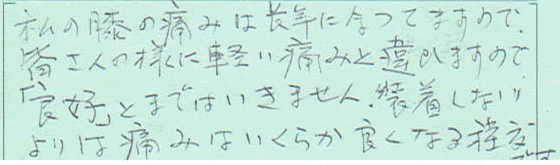 私の膝の痛みは長年に亘ってますので、
皆さんの様に軽い痛みと違いますので
「良好」とまではいきません。装着しない
よりは痛みはいくらか良くなる程度
です